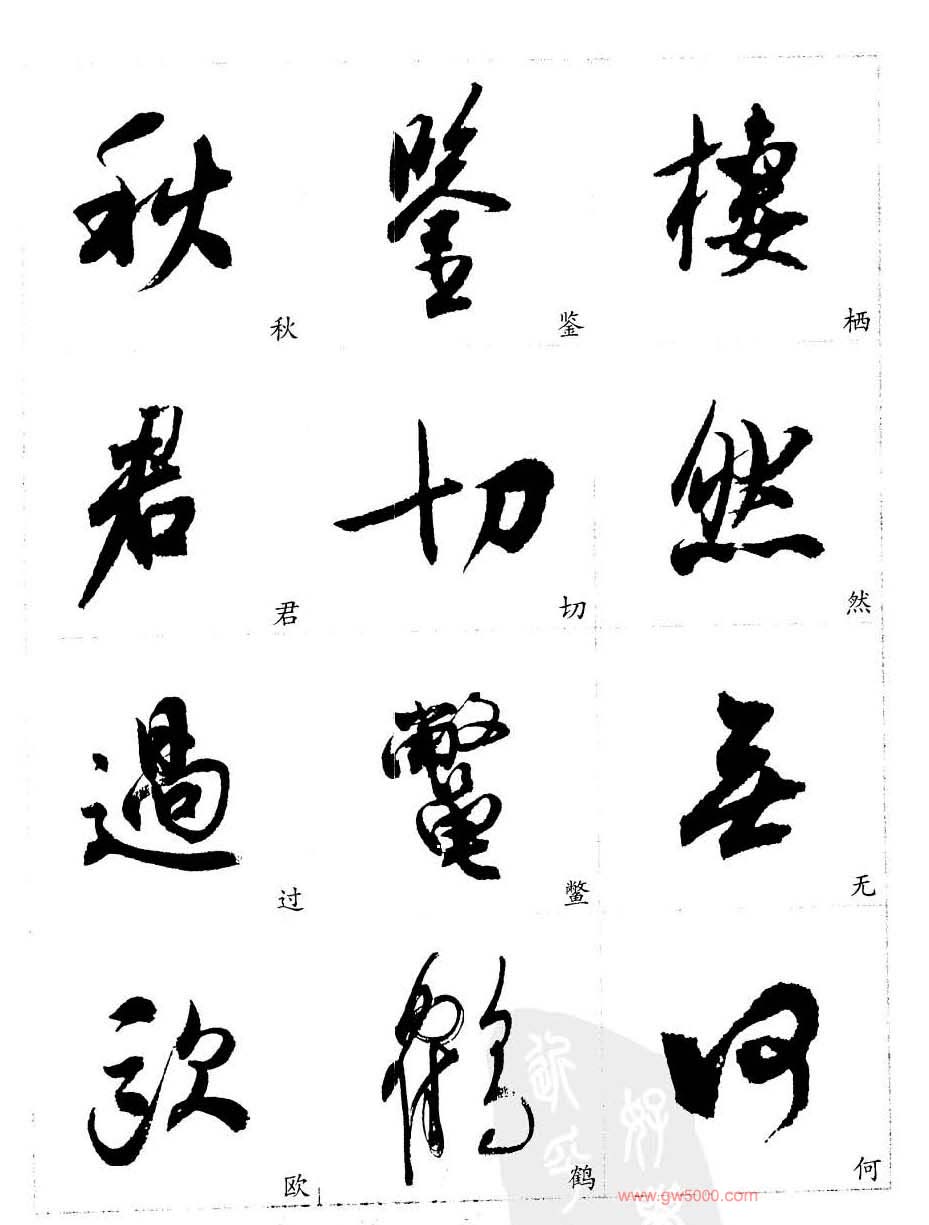 秋 鉴 栖
秋 鑒 棲
君 切 然
君 切 然
過 鼈 無
过 鳖 无
歐 鶴 何
欧 鹤 何
www.gw5000.com